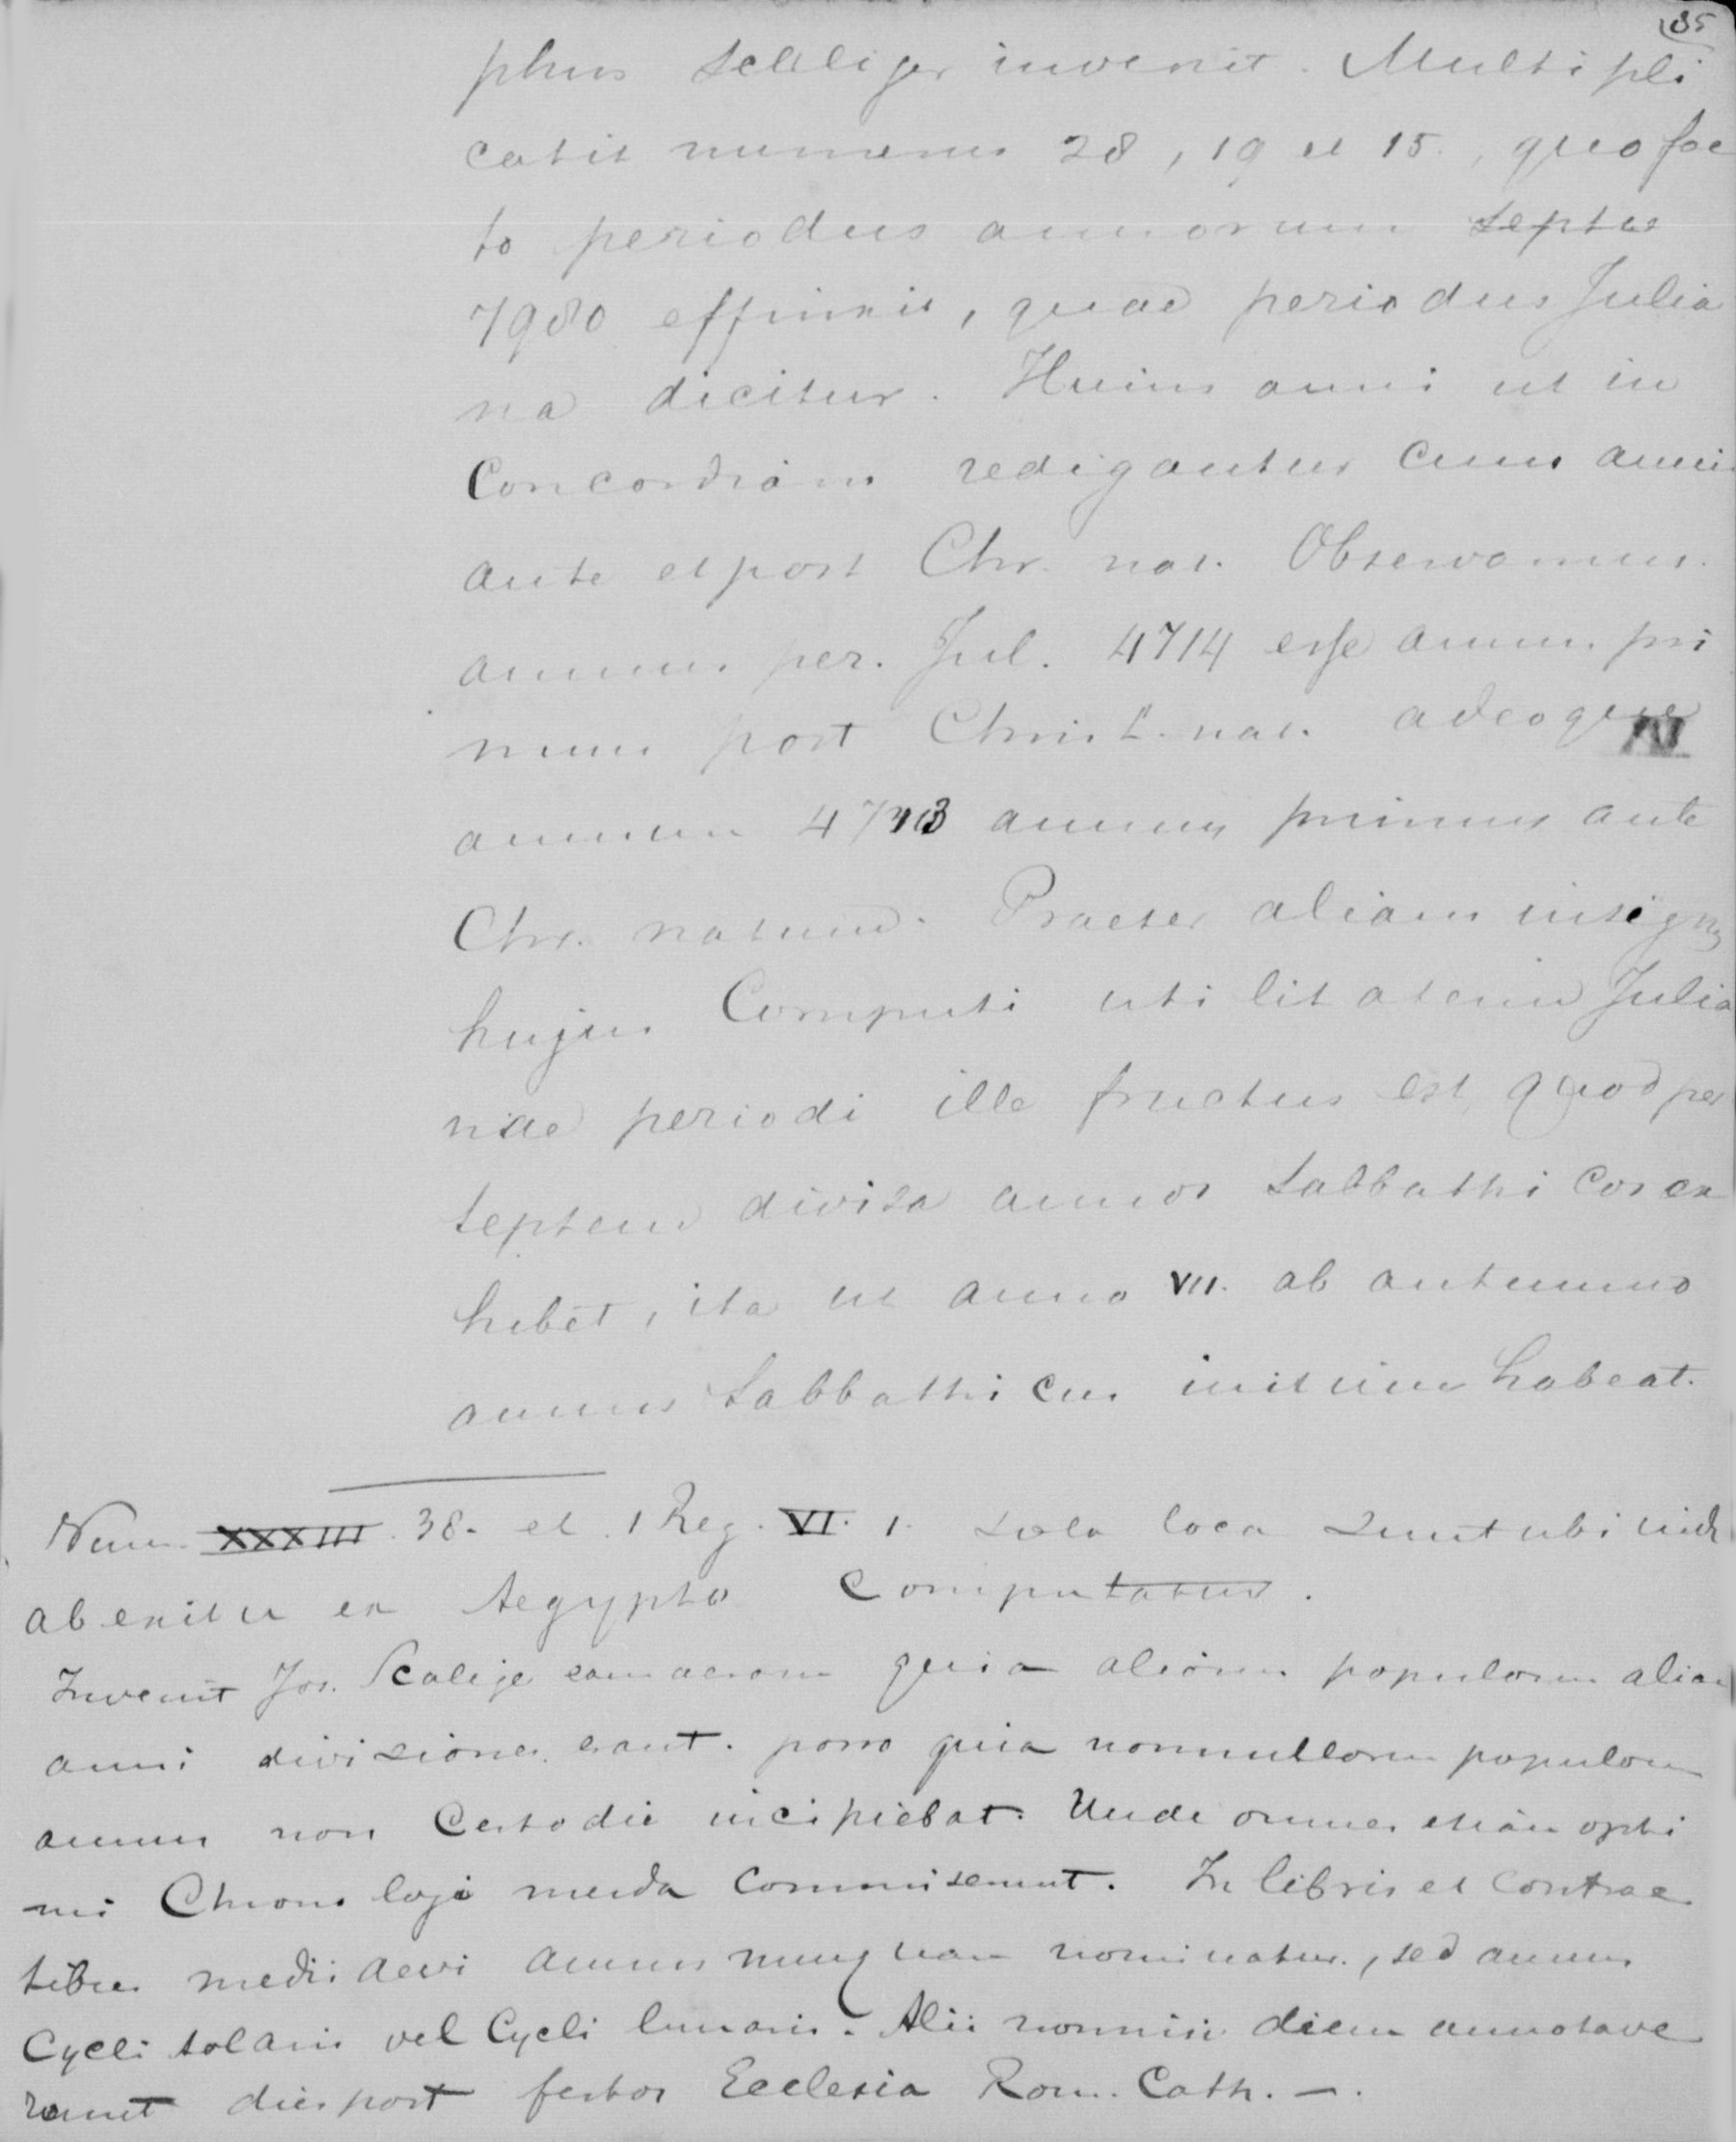 35
phus Scaliger invenit. Multipli
cavit numeros 28, 19 et 15., quo fac
to periodus annorum septu
7980 effinxit, quae periodus Julia
na dicitur. Huius anni ut in
Concordiam redigantur cum anni
ante et post Chr. nat. Observamus
annum per. Jul. 4714 esse annum pri
mum post Christ. nat. adeoque
annum 4713 annus primus ante
Chr. natum. Praeter aliam insign
hujus Computi utilitatem Julia
nae periodi ille fructus est, quod per
septem divisa annos Sabbathicos ex
hibet, ita ut anno VII. ab autumno
annus Sabbathicus initium habeat.
Num. XXXIII. 38. et 1 Reg. VI. 1. sola loca sunt ubi
ab exitu ex Aegypto Computatur.
Invenit Jos. Scalige eam aeram quia aliorum populorum aliae
anni divisiones erant. porro quia nonnullorum populorum
annus non Certo die incipiebat. Unde omnes etiam opti
mi Chronologi menda Commiserunt. In libris et Contrac
tibus medii aevi annus nunquam nominatur, sed annus
Cycli solaris vel Cycli lunaris. Alii nonnisi diem annotave
runt dies post festos Ecclesia Rom. Cath. —.